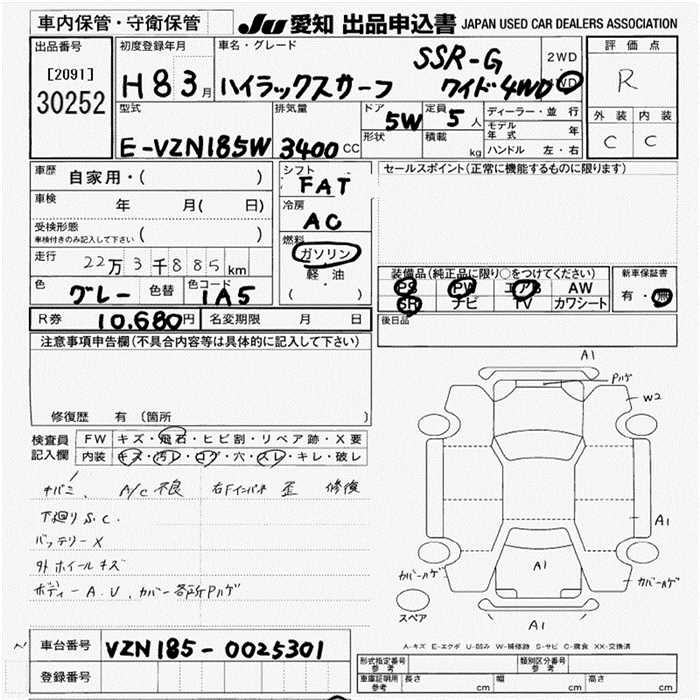 車内保管・守衛保管
JU 愛知 出品申込書 JAPAN USED CAR DEALERS ASSOCIATION
出品番号
[2091]
30252
初度登録年月
H 8 3 月
車名・グレード
SSR-G
ハイラックスサーフ ワイド 4WD
2WD
4WD
評価点
R
外装 内装
C C
型式
E-VZN185W
排気量
3400 CC
ドア
5W
形状
定員
5 人
積載
kg
ディーラー・並行
モデル年式 年
ハンドル 左・右
車歴
自家用・( )
車検
年 月( 日)
受検形態
車検付きのみ記入して下さい ( )
走行
22万3千885km
色
グレー
色替
色コード
1A5
シフト
FAT
冷房
AC
燃料
ガソリン
軽・油
( ・ )
セールスポイント(正常に機能するものに限ります)
装備品(純正品に限り○をつけてください)
PS PW エアB AW
SR ナビ TV カワシート
新車保証書
有・無
後日品
R券 10,680円 名変更期限 月 日
注意事項申告欄(不具合内容等は具体的に記入して下さい)
修復歴 有(箇所 )
検査員記入欄
FW キズ・飛石・ヒビ割・リペア跡・X要
内装 キズ・汚レ・コゲ・穴・スレ・キレ・破レ
A/C不良 右Fインパネ 歪 修復
下廻りS.C.
バッテリーX
外ホイールキズ
ボディーA.U. カバー各所Pハゲ
A1
Pハゲ
W2
A1
A1
カバーハゲ
カバーハゲ
スペア
A1
A-キズ E-エクボ U-凹み W-補修跡 S-サビ C-腐食 XX-交換済
車台番号 VZN185-0025301
登録番号
形式指定番号 参考
類別区分番号 参考
車庫証明用 参考 長さ cm 幅 cm 高さ cm